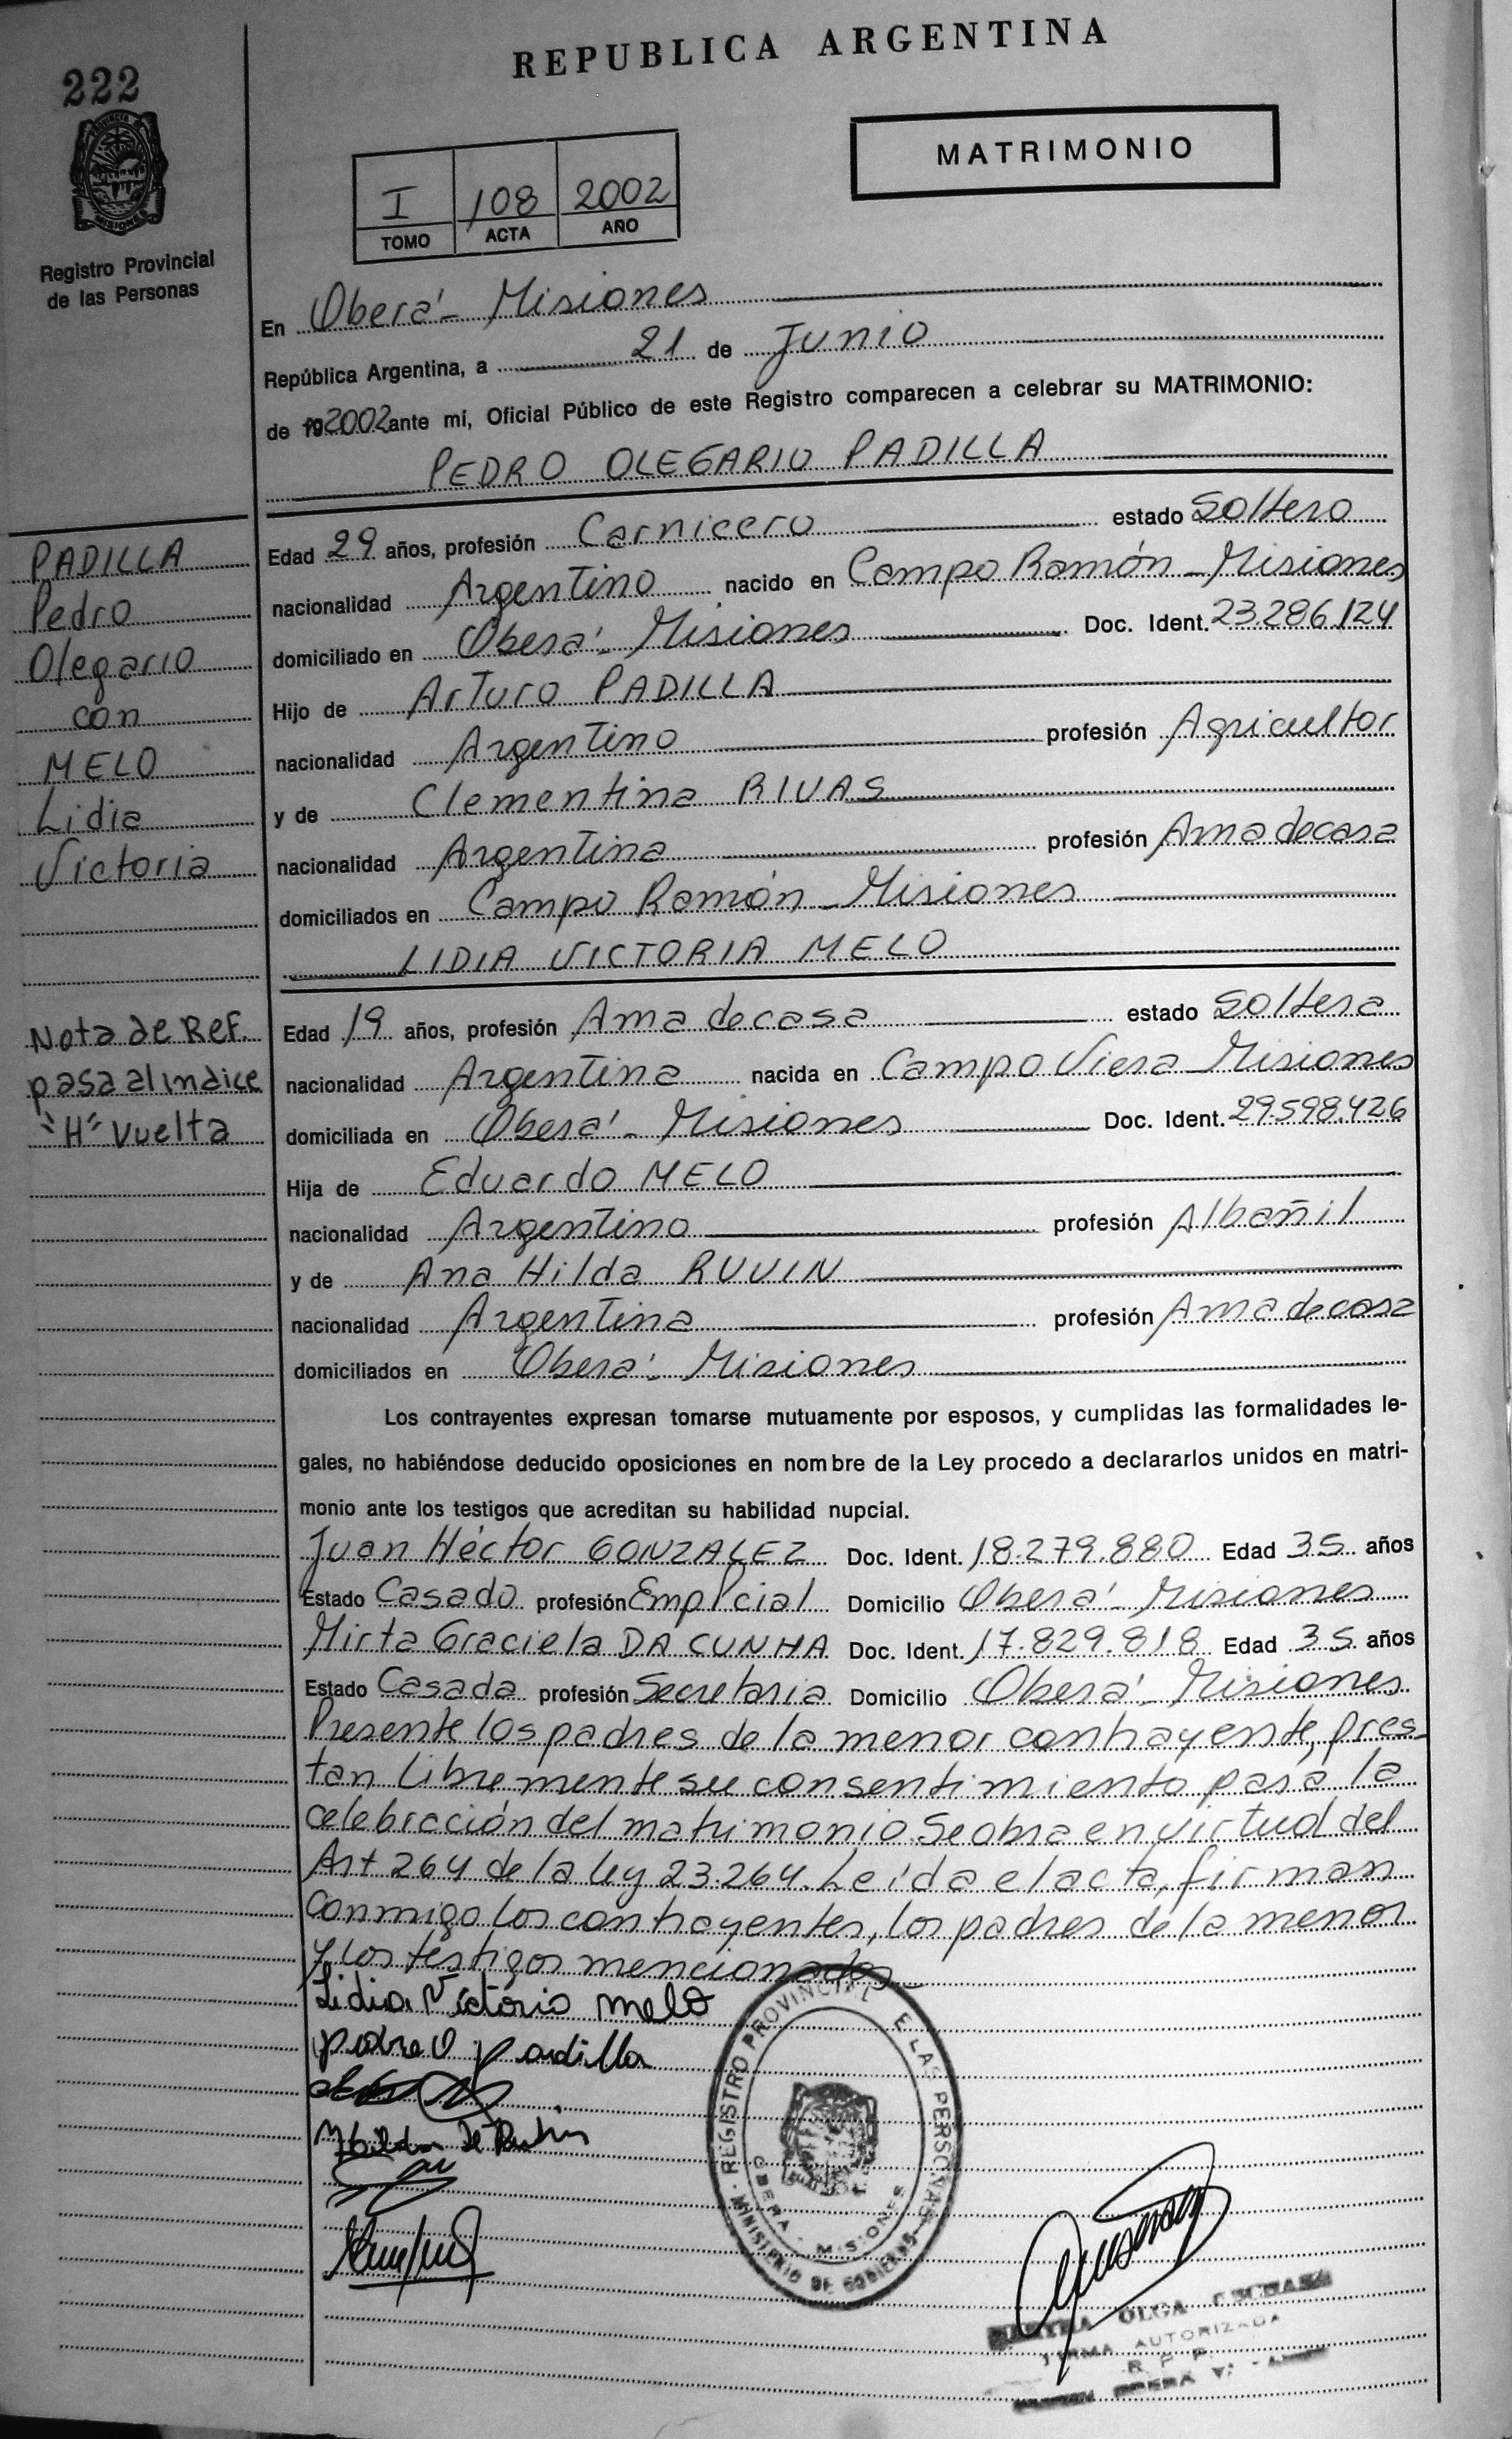 REPUBLICA ARGENTINA
222
MATRIMONIO
I 108 2002
TOMO ACTA AÑO
Registro Provincial
de las Personas
En Oberá - Misiones
República Argentina, a 21 de Junio
de 192002 ante mí, Oficial Público de este Registro comparecen a celebrar su MATRIMONIO:
PEDRO OLEGARIO PADILLA
PADILLA
Pedro
Olegario
con
MELO
Lidia
Victoria
Edad 29 años, profesión Carnicero estado Soltero
nacionalidad Argentino nacido en Campo Ramón - Misiones
domiciliado en Oberá - Misiones Doc. Ident. 23.286.124
Hijo de Arturo PADILLA
nacionalidad Argentino profesión Agricultor
y de Clementina RIVAS
nacionalidad Argentina profesión Ama de casa
domiciliados en Campo Ramón - Misiones
LIDIA VICTORIA MELO
Nota de Ref.
pasa al indice
"H" Vuelta
Edad 19 años, profesión Ama de casa estado Soltera
nacionalidad Argentina nacida en Campo Viera - Misiones
domiciliada en Oberá - Misiones Doc. Ident. 29.598.426
Hija de Eduardo MELO
nacionalidad Argentino profesión Albañil
y de Ana Hilda RUVIN
nacionalidad Argentina profesión Ama de casa
domiciliados en Oberá - Misiones
Los contrayentes expresan tomarse mutuamente por esposos, y cumplidas las formalidades le-
gales, no habiéndose deducido oposiciones en nombre de la Ley procedo a declararlos unidos en matri-
monio ante los testigos que acreditan su habilidad nupcial.
Juan Héctor GONZALEZ Doc. Ident. 18.279.880 Edad 35 años
Estado Casado profesión Emplcial Domicilio Oberá - Misiones
Mirta Graciela DA CUNHA Doc. Ident. 17.829.818 Edad 35 años
Estado Casada profesión Secretaria Domicilio Oberá - Misiones
Presente los padres de la menor contrayente, pres-
tan libremente su consentimiento para la
celebración del matrimonio. Se obra en virtud del
Art 264 de la ley 23.264. Leída el acta, firman
conmigo los contrayentes, los padres de la menor
y los testigos mencionados
Lidia Victoria melo
pedro O padilla
REGISTRO PROVINCIAL E LAS PERSONAS
MINISTERIO DE GOBIERNO
OBERA - MISIONES
OLGA
FIRMA AUTORIZADA
R P P
OBERA